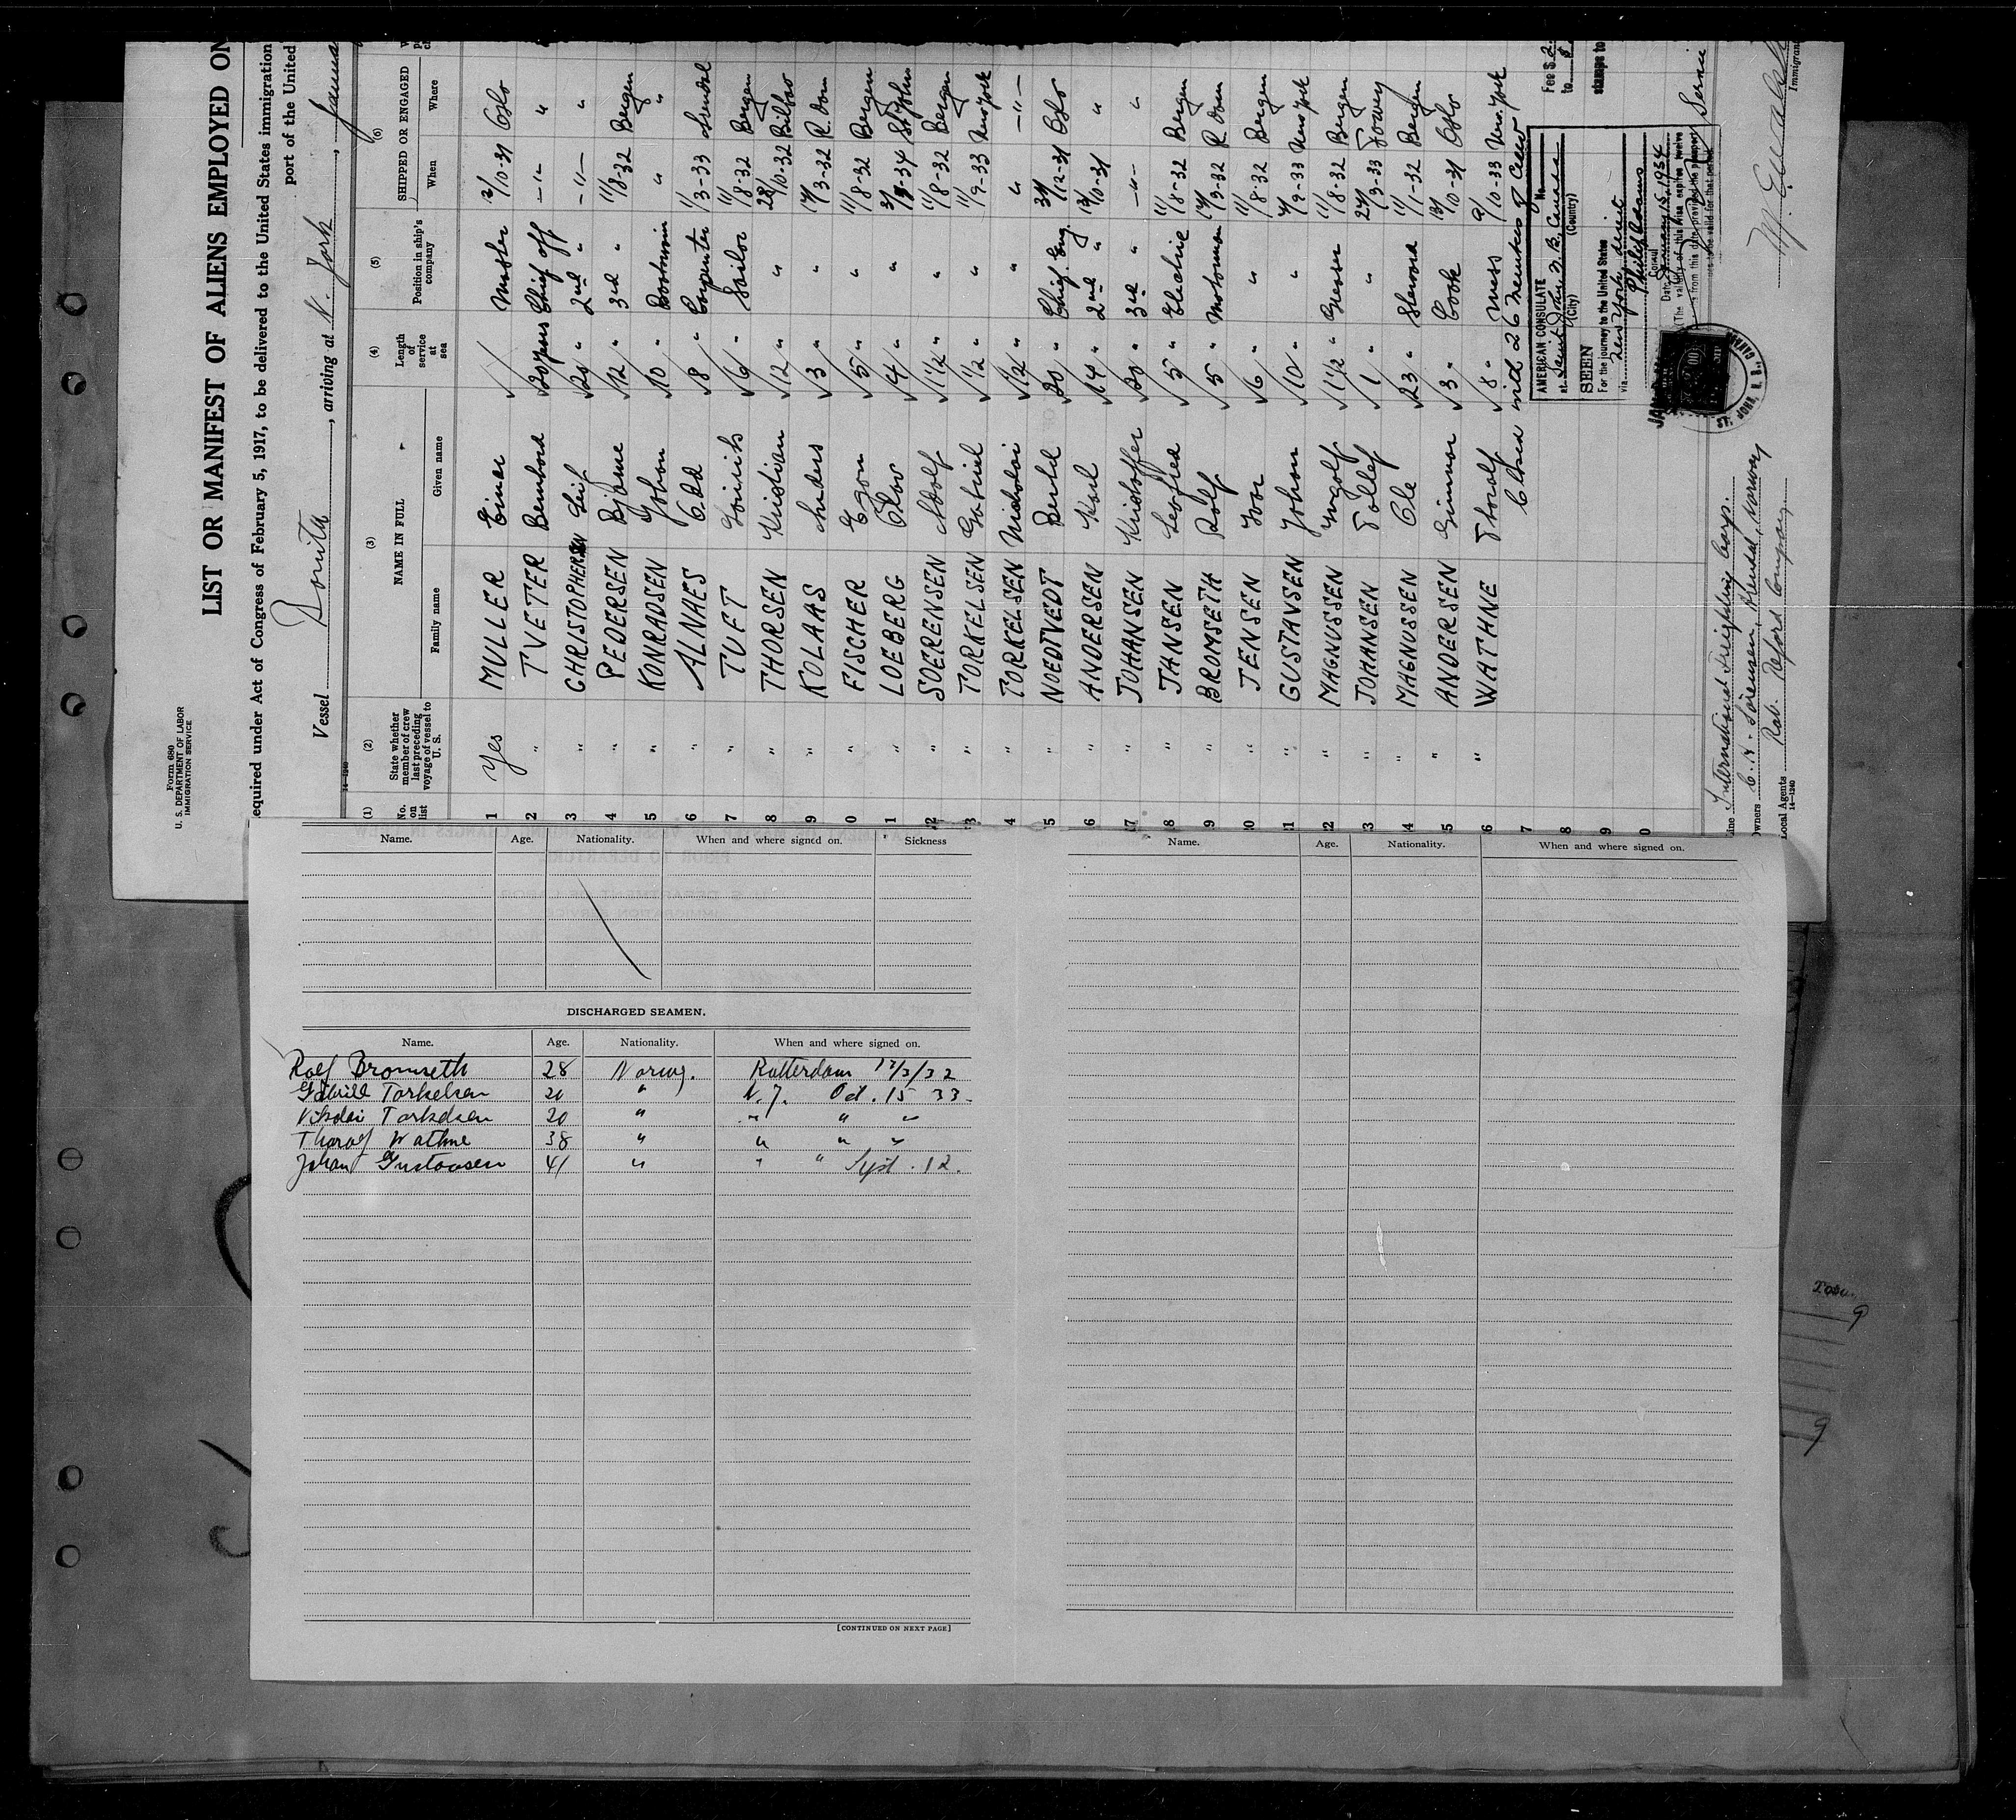 Form 680
U. S. DEPARTMENT OF LABOR
IMMIGRATION SERVICE
LIST OR MANIFEST OF ALIENS EMPLOYED ON
equired under Act of Congress of February 5, 1917, to be delivered to the United States immigration
port of the United
Vessel Donita, arriving at N. York,
(1) (2) (3) (4) (5) (6)
No. on list
State whether member of crew last preceding voyage of vessel to U. S.
NAME IN FULL
Family name Given name
Length of service at sea
Position in ship's company
SHIPPED OR ENGAGED
When Where
14—1240
1 Yes MULLER Einar Master 2/10-31 Oslo
2 " TVETER Bernhard 20 years Chief off -"- "
3 " CHRISTOPHERSEN Leif 20 " 2nd " -"- "
4 " PEDERSEN Bjarne 12 " 3rd " 11/8-32 Bergen
5 " KONRADSEN Johan 10 " Boatswain " "
6 " ALNAES Odd 8 " Carpenter 1/3-33 Arendal
7 " TUFT 6 " Sailor 11/8-32 Bergen
8 " THORSEN Kristian 12 " " 28/10-32 Bilbao
9 " KOLAAS Anders 3 " " 17/3-32 R. dam
0 " FISCHER Egon 5 " " 11/8-32 Bergen
1 " LOEBERG Olav 4 " " St John
2 " SOERENSEN Adolf 1 1/2 " " 11/8-32 Bergen
3 " TORKELSEN Gabriel 1/2 " " 11/9-33 New York
4 " TORKELSEN Nicholai 1/2 " " " -"-
5 " NOEDTVEDT Bertel 20 " Chief Eng. 31/12-31 Oslo
6 " ANDERSEN Karl 14 " 2nd " 13/10-31 "
7 " JOHANSEN Kristoffer 20 " 3rd " -"- "
8 " JANSEN 5 " 11/8-32 Bergen
9 " BROMSETH Rolf 5 " Motorman 17/3-32 R. dam
0 " JENSEN 6 " " 11/8-32 Bergen
1 " GUSTAVSEN Johan 10 " " 9-33 New York
2 " MAGNUSSEN Ingolf 1 1/2 " Greaser 11/8-32 Bergen
3 " JOHANSEN Tollef 1 " " 27/3-33 Fowey
4 " MAGNUSSEN Ole 23 " Steward 11/1-32 Bergen
5 " ANDERSEN Gunnar 3 " Cook 13/10-31 Oslo
6 " WATHNE Thoralf 8 " Mess 9/10-33 New York
7 Closed with 26 members of Crew
8
9
0
AMERICAN CONSULATE
at Saint John, N. B., Canada
(City) (Country)
SEEN
For the journey to the United States
via New York direct
Consul
Date January 15, 1934
The validity of this visa expires twelve
from this date provided the passport
to be valid for that period.
No.
Fee $ 2.
stamps to
Service
Immigran
ine International Freighting Corp.
wners C. H. Sörensen, Arendal, Norway
Local Agents Rob. Reford Company
14—1240
Name. Age. Nationality. When and where signed on. Sickness
DISCHARGED SEAMEN.
Name. Age. Nationality. When and where signed on.
Rolf Bromseth 28 Norwg. Rotterdam 17/3/32
Gabriel Torkelsen 20 " N.Y. Oct. 15 33.
Nikolai Torkelsen 20 " " " "
Thoralf Wathne 38 " " " "
Johan Gustavsen 41 " " " Sept. 12.
[CONTINUED ON NEXT PAGE]
Name. Age. Nationality. When and where signed on.
9
9